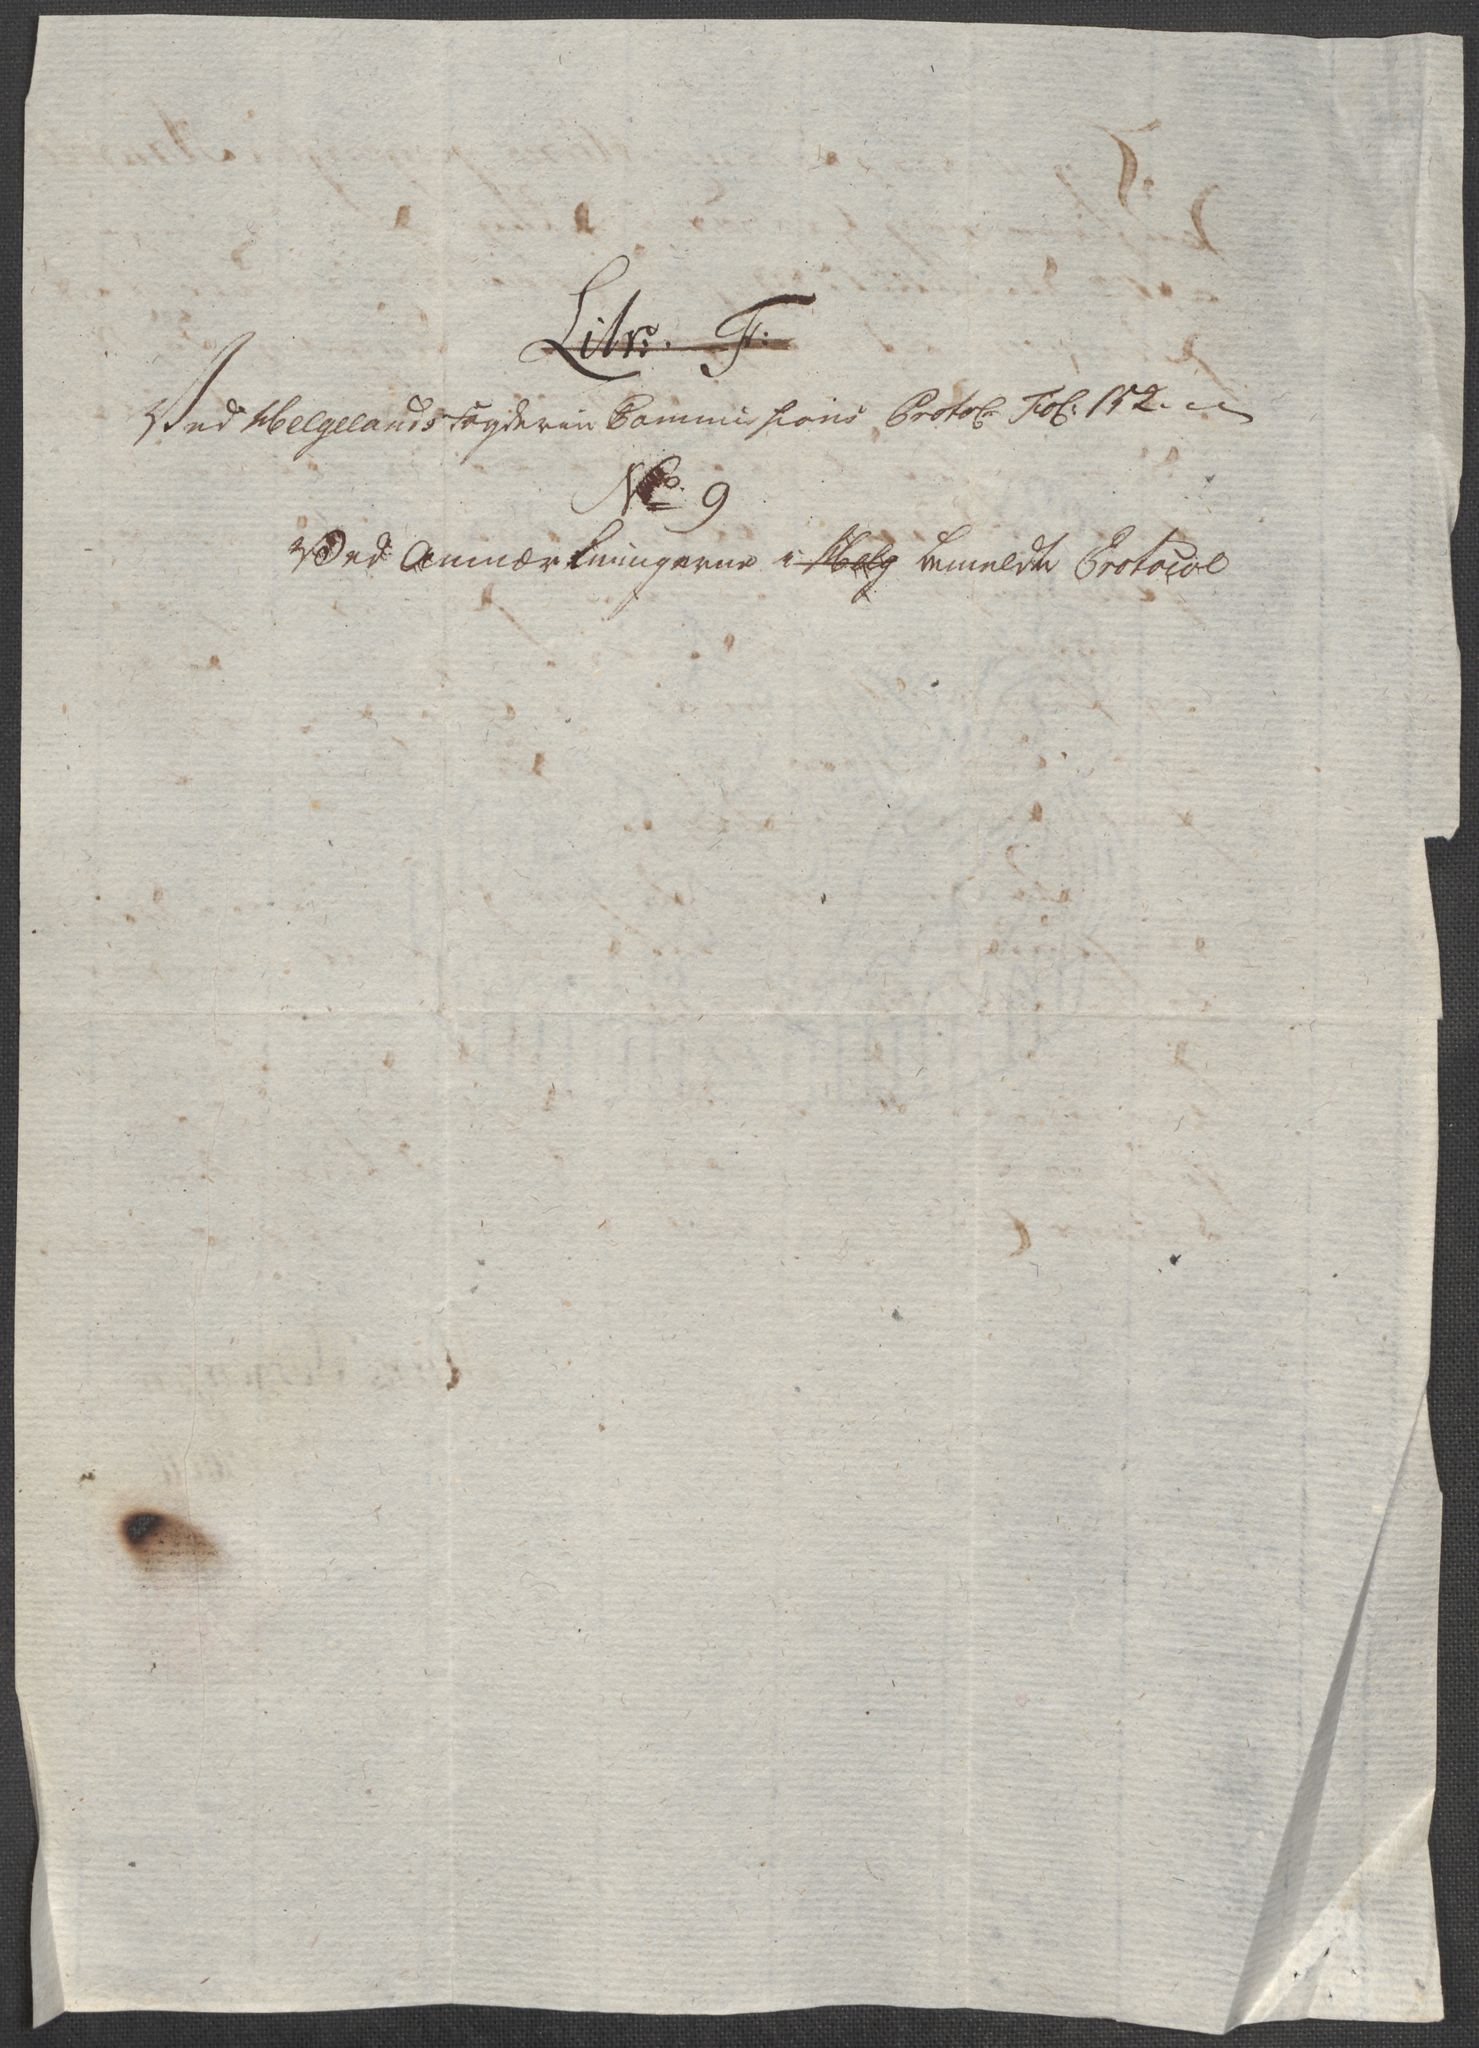 Litr: F:
Ved Helgelands Fogderie Commissions Protocol Fol: 152.
No. 9
Ved Anmærkningerne i Helg bemeldte Protocol